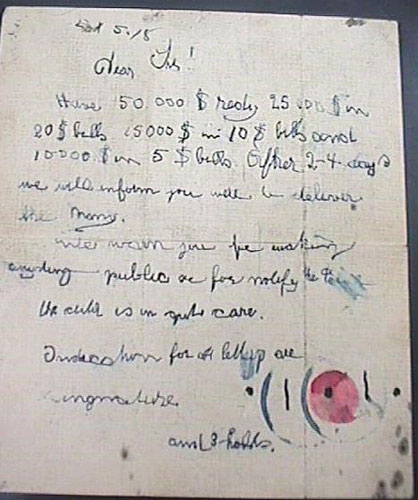 Dear Sir!
Have 50 000 $ redy 25 000 $ in
20 $ bills 15000 $ in 10 $ bills and
10000 $ in 5 $ bills. After 2-4 days
we will inform you were to deliver
the Mony.
We warn you for making
anyding public or for notify the
the child is in gute care.
Indication for all letters are
singnature
and 3 holds.